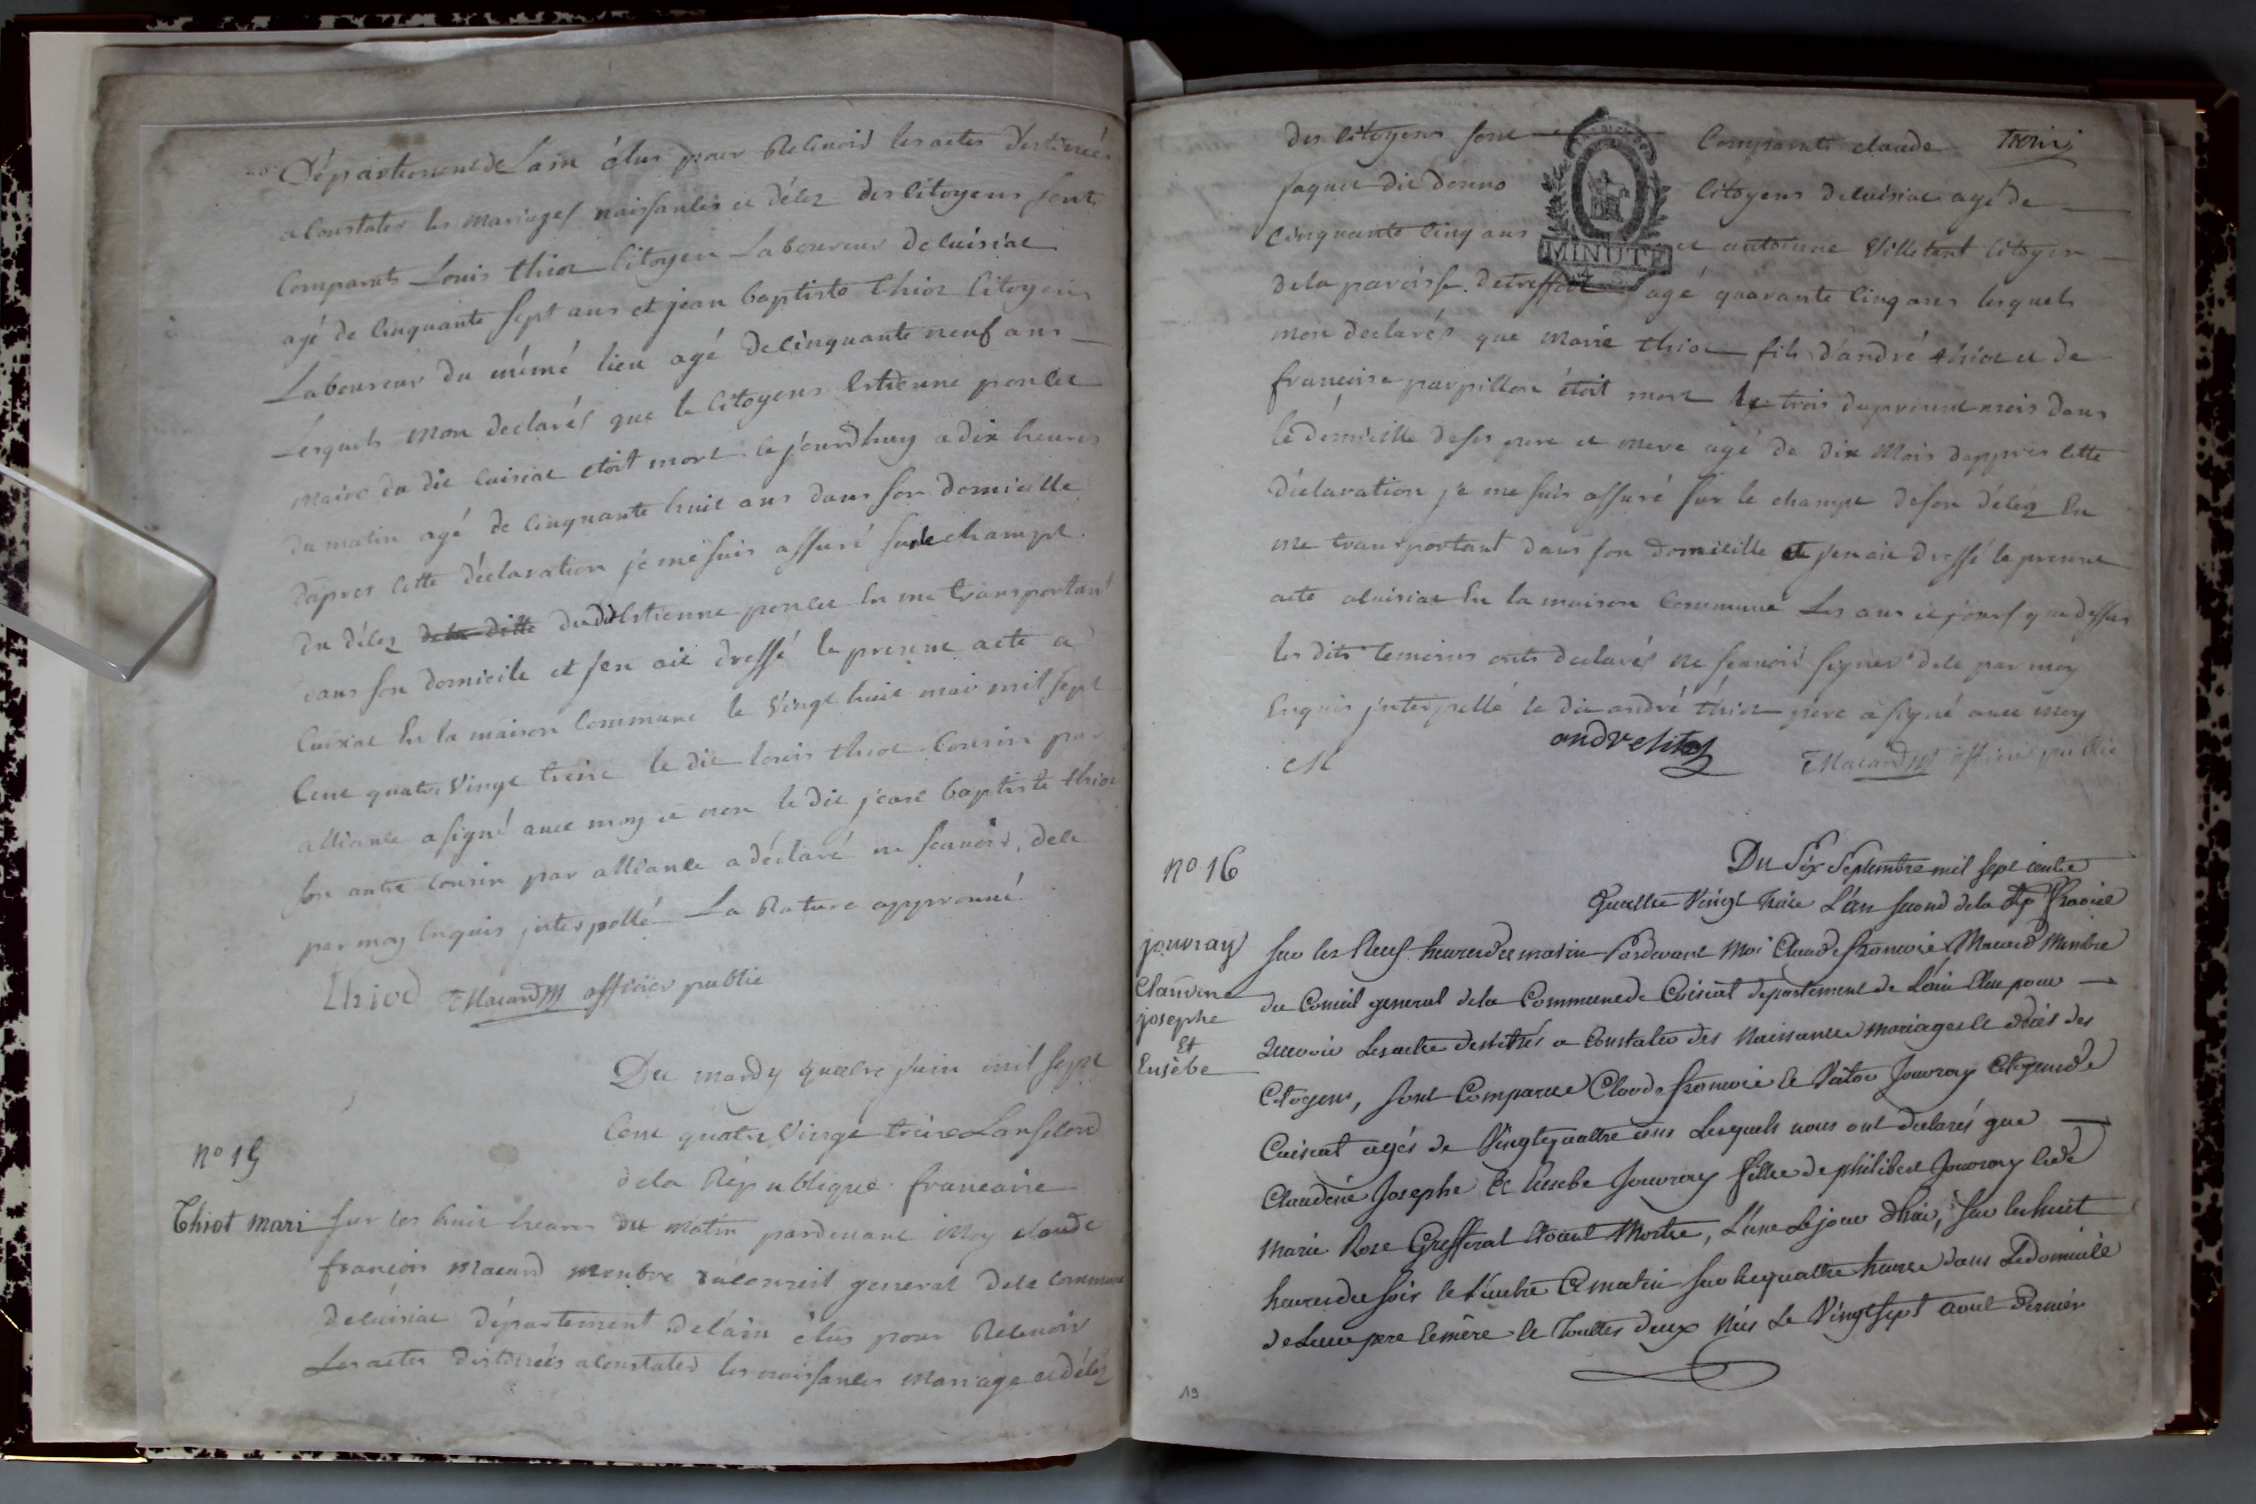 Département de Lain élus pour Recevoir les actes destinés
a Constater les mariages naissances et décez des Citoyens sont
Comparants Louis thiot Citoyen Laboureur de Cuisiat
agé de Cinquante sept ans et jean baptiste thiot Citoyen
Laboureur du mémé lieu agé de Cinquante neuf ans
Lesquels mon declarés que le Citoyens Estienne poncet
maire du dit Cuisiat etoit mort le jourdhuy a dix heures
du matin agé de Cinquante huit ans dans son Domicille
dapres Cette déclaration je me suis assuré sur le champt
du décez de la ditte du dit Estienne poncet En me transportant
dans son domicile et jen ait dressé le present acte a
Cuisiat En la maison Commune le Vingt huit mai mil sept
Cent quatre Vingt treize le dit louis thiot Cousin par
alliance a signé avec moy et non le dit jean baptiste thiot
son autre Cousin par alliance a déclaré ne scavoir, dele
par moy Enquis jnterpellé La Rature approuvé
thiod CMacard M officier public
Du mardy quatre juin mil sept
Cent quatre Vingt treize Lan second
de la République francaise
n° 15
Thiot mari
sur les huit heures du matin pardevant Moy claude
francois Macard membre du Conseil general de la Commune
de Cuisiat département de lain élus pour Recevoir
Les actes destinés a Constater les naissances mariage et décez
des Citoyens sont Comparants claude
jaquet dit donno Citoyens de Cuisiat agé de
Cinquante Cinq ans et antoinne Villetant Citoyen
MINUTE
de la paroisse de treffort agé quarante Cinq ans lesquels
mon declarés que Marie thiot fils d'andré thiot et de
francoise parpillon étoit mort le trois du present mois dans
le domicille de ses pere et mere agé de dix Mois dapprès Cette
déclaration je me suis assuré sur le champt de son décéz En
me transportant dans son domicille et jen ait dressé le present
acte a Cuisiat En la maison Commune Les ans et jours que dessus
les dits temoins onts declarés ne scavoir signer dele par moy
Enquis jnterpellé le dit andré thiot pere a signé avec moy
andre thiot
CMacard M officier public
n° 16
Du Six Septembre mil sept cents
Quattre Vingt treize L'an second de la Rép francaise
jouvray
Claudine
josephe
Et
Eusèbe
sur les Neuf heures du matin Pardevant Moi Claude francois Macard Membre
du Conseil general de la Commune de Cuisiat departement de Lain Elu pour
Recevoir Les actes destinés a Constater des Naissances mariages et décès des
Citoyens, sont Comparus Claude francois et Jouvray Citoyens de
Cuisiat agés de Vingtquattre ans Lesquels nous ont declarés que
Claudine Josephe et Eusebe Jouvray filles de philibert Jouvray et de
Marie Rose Grefferat étoient Mortes, L'une Le jour d'hier, sur les huit
heures du soir et L'autre Ce matin sur les quattre heures dans Le domicile
de Leur pere et mère et Touttes deux Nées Le Vingtsept aout Dernier
19